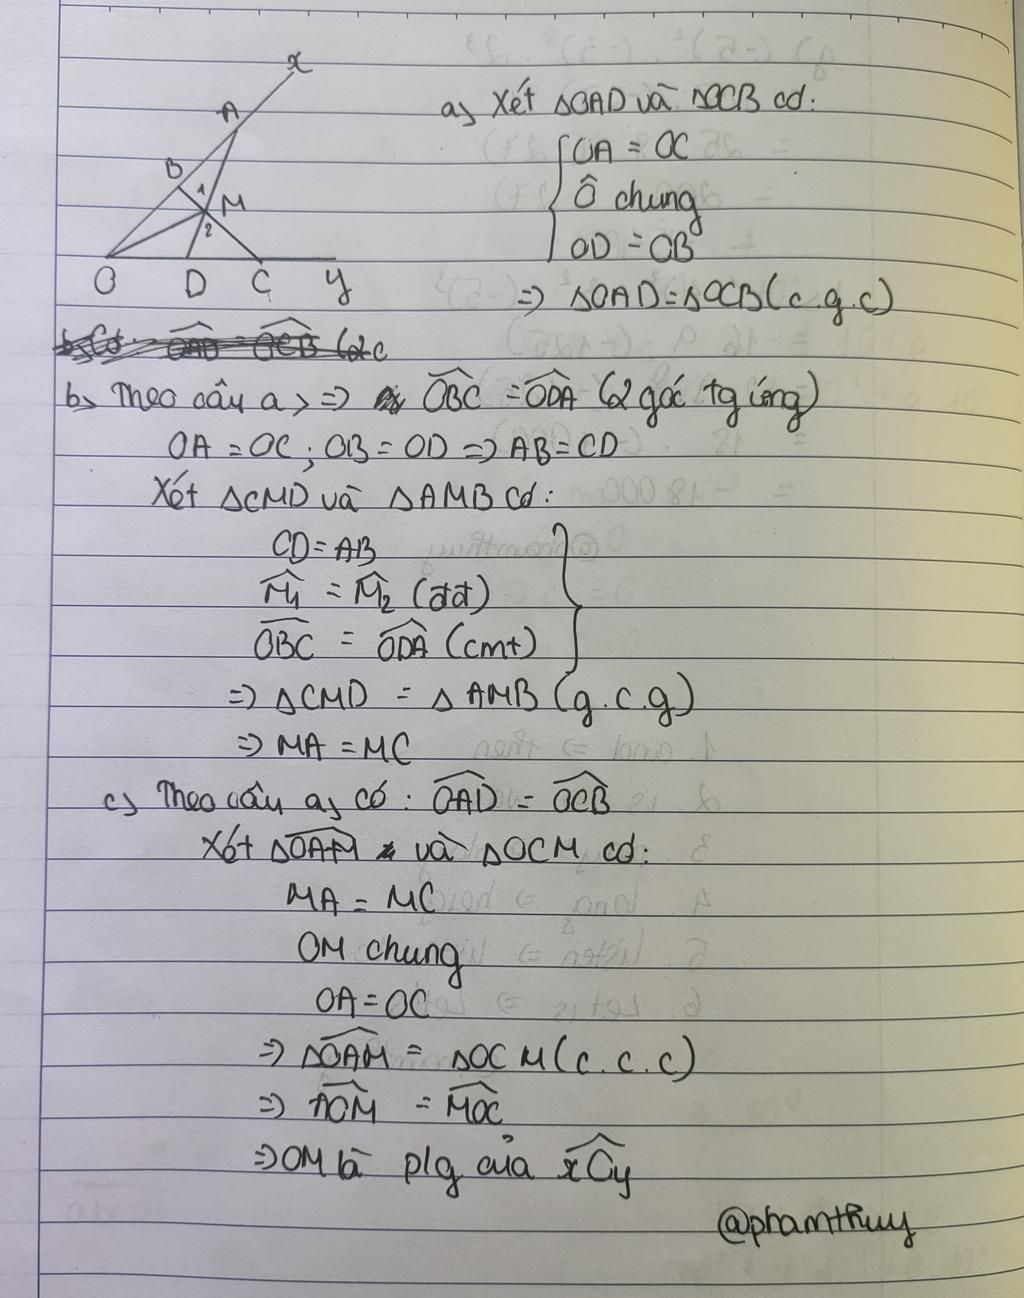 x
A
B
1
M
2
O D C y
a, Xét ΔOAD và ΔOCB có:
OA = OC
Ô chung
OD = OB
=> ΔOAD = ΔOCB (c.g.c)
b, Theo câu a, => OBC = ODA (2 góc tg ứng)
OA = OC; OB = OD => AB = CD
Xét ΔCMD và ΔAMB có:
CD = AB
M1 = M2 (đđ)
OBC = ODA (cmt)
=> ΔCMD = ΔAMB (g.c.g)
=> MA = MC
c, Theo câu a, có: OAD = OCB
Xét ΔOAM và ΔOCM có:
MA = MC
OM chung
OA = OC
=> ΔOAM = ΔOCM (c.c.c)
=> AOM = MOC
=> OM là p/g của xOy
@phamthuy